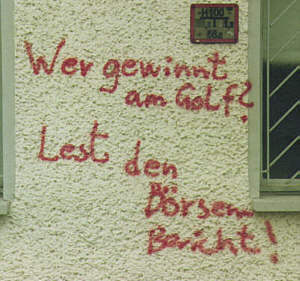 H100
Wer gewinnt
am Golf?
Lest den
Börsen
Bericht!